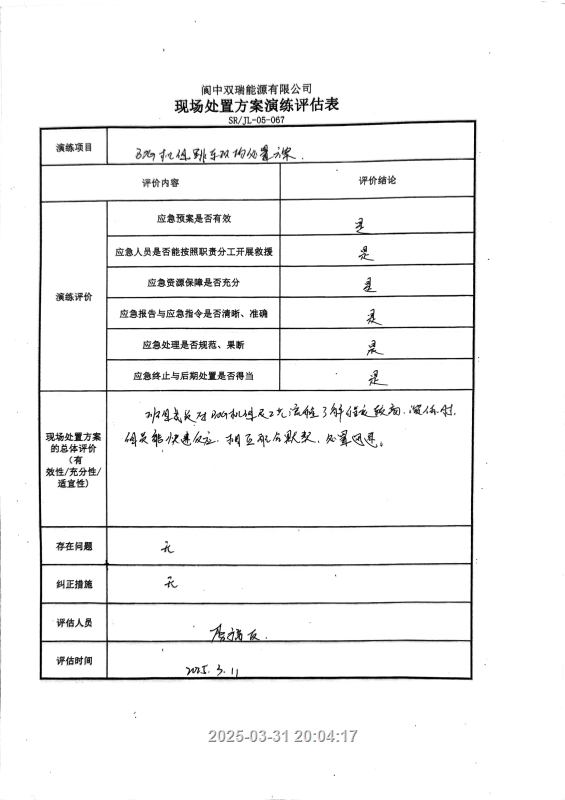 阆中双瑞能源有限公司
现场处置方案演练评估表
SR/JL-05-067
演练项目
BOG机组跳车现场处置方案.
评价内容 评价结论
演练评价
应急预案是否有效 是
应急人员是否能按照职责分工开展救援 是
应急资源保障是否充分 是
应急报告与应急指令是否清晰、准确 是
应急处理是否规范、果断 是
应急终止与后期处置是否得当 是
现场处置方案
的总体评价
(有
效性/充分性/
适宜性)
班组成员对BOG机组及工艺流程了解
员能快速反应, 相互配合默契, 处置迅速。
存在问题 无
纠正措施 无
评估人员
评估时间 2025.3.11
2025-03-31 20:04:17